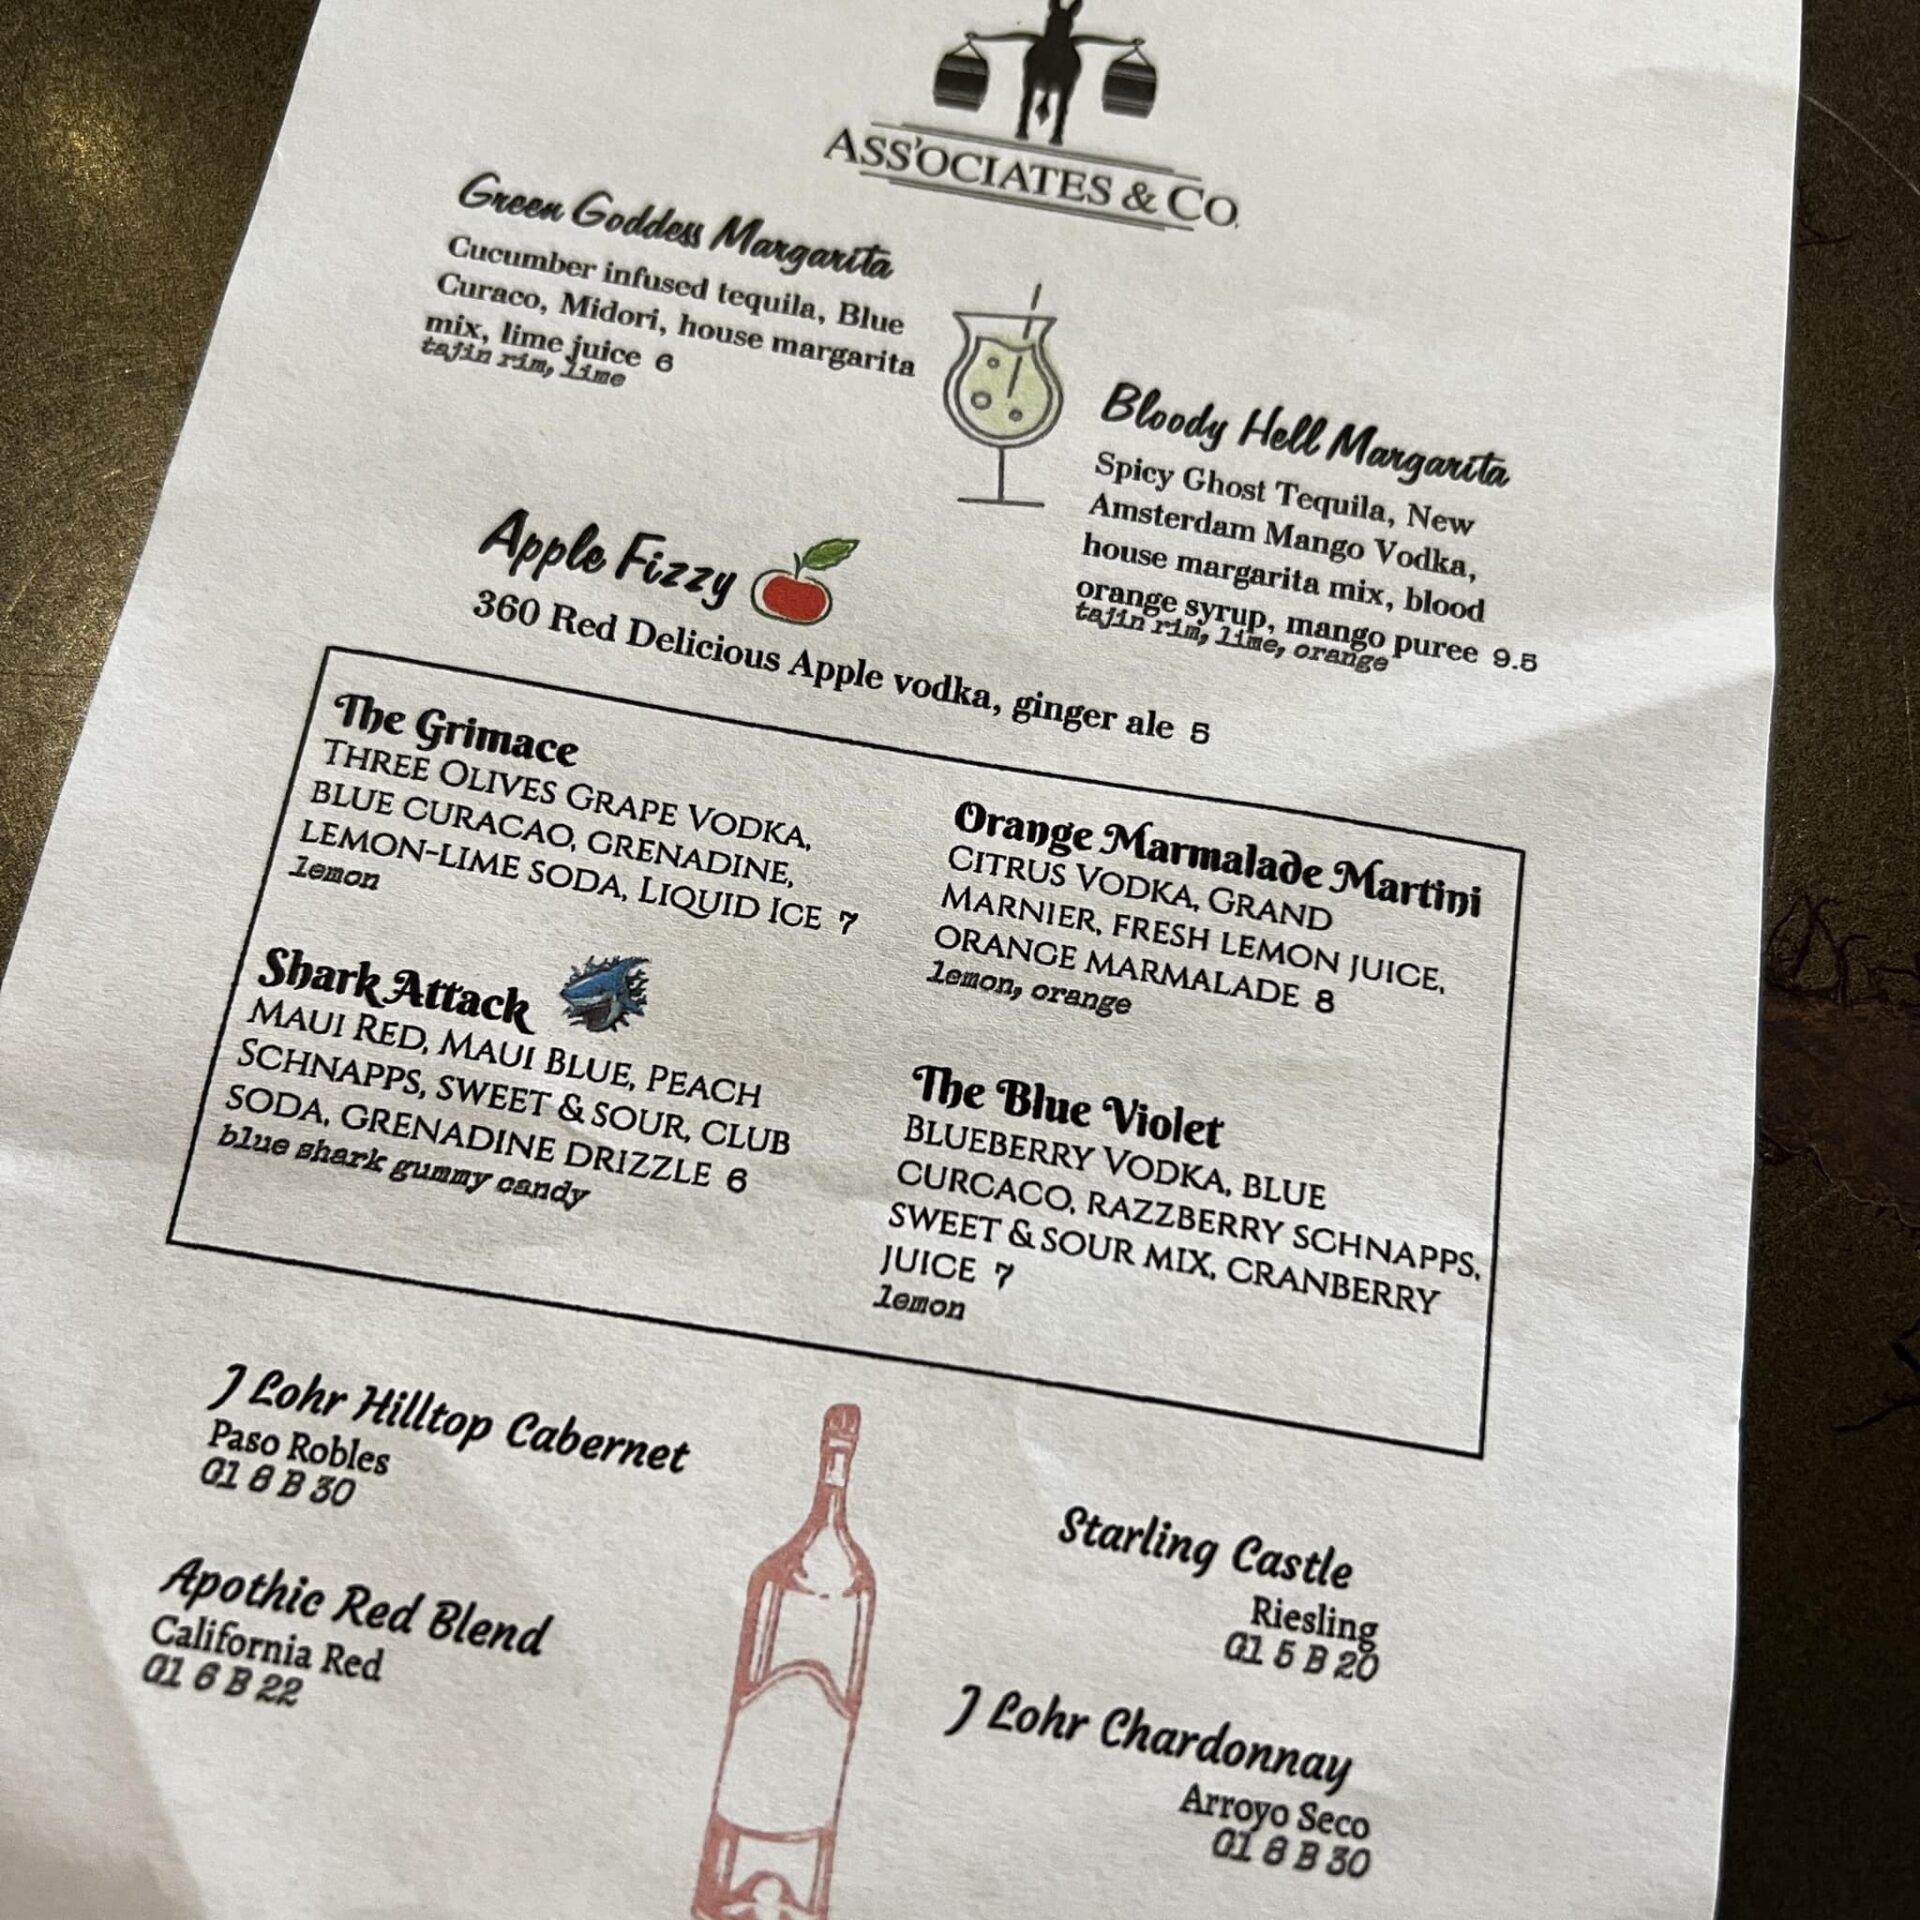 ASS'OCIATES & CO.
Green Goddess Margarita
Cucumber infused tequila, Blue
Curaco, Midori, house margarita
mix, lime juice 6
tajin rim, lime
Bloody Hell Margarita
Spicy Ghost Tequila, New
Amsterdam Mango Vodka,
house margarita mix, blood
orange syrup, mango puree 9.5
tajin rim, lime, orange
Apple Fizzy
360 Red Delicious Apple vodka, ginger ale 5
The Grimace
THREE OLIVES GRAPE VODKA,
BLUE CURACAO, GRENADINE,
LEMON-LIME SODA, LIQUID ICE 7
lemon
Shark Attack
MAUI RED, MAUI BLUE, PEACH
SCHNAPPS, SWEET & SOUR, CLUB
SODA, GRENADINE DRIZZLE 6
blue shark gummy candy
Orange Marmalade Martini
CITRUS VODKA, GRAND
MARNIER, FRESH LEMON JUICE,
ORANGE MARMALADE 8
lemon, orange
The Blue Violet
BLUEBERRY VODKA, BLUE
CURCACO, RAZZBERRY SCHNAPPS,
SWEET & SOUR MIX, CRANBERRY
JUICE 7
lemon
J Lohr Hilltop Cabernet
Paso Robles
Gl 8 B 30
Apothic Red Blend
California Red
Gl 6 B 22
Starling Castle
Riesling
Gl 5 B 20
J Lohr Chardonnay
Arroyo Seco
Gl 8 B 30